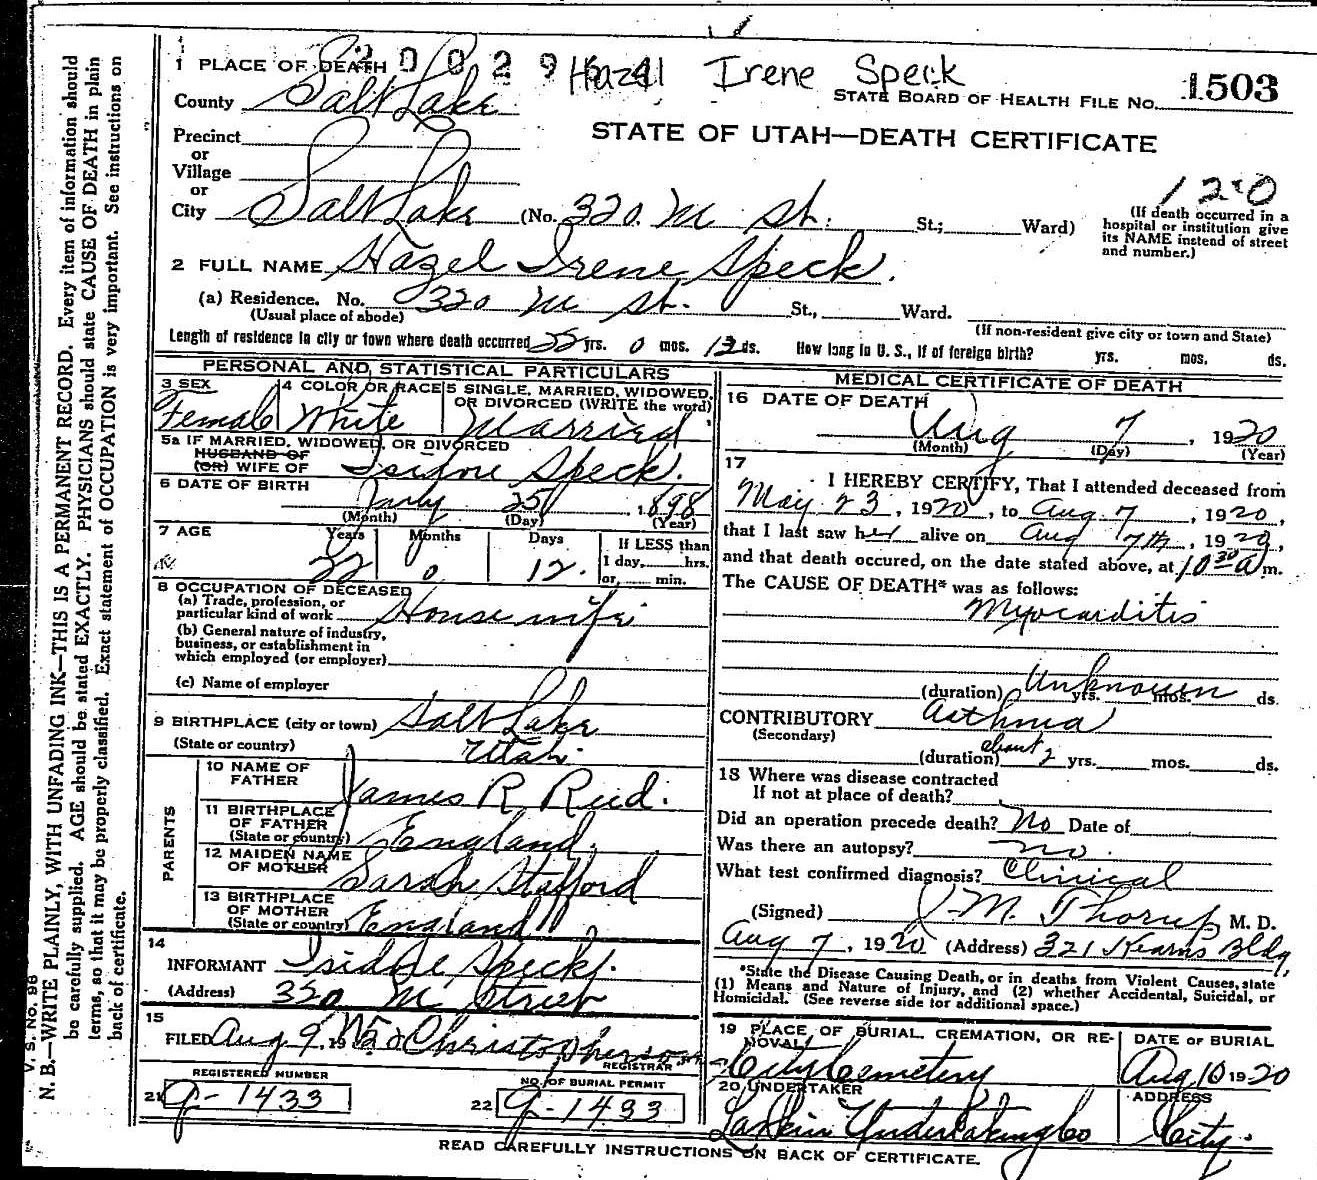 1 PLACE OF DEATH
2 0 0 2 9
Hazel Irene Speck
STATE BOARD OF HEALTH FILE No. 1503
County Salt Lake
STATE OF UTAH—DEATH CERTIFICATE
Precinct
or
Village
or
City Salt Lake (No. 320 M St. St.; Ward)
120
(If death occurred in a
hospital or institution give
its NAME instead of street
and number.)
2 FULL NAME Hazel Irene Speck.
(a) Residence. No. 320 M St. St., Ward.
(Usual place of abode)
(If non-resident give city or town and State)
Length of residence in city or town where death occurred 22 yrs. 0 mos. 12 ds. How long in U. S., if of foreign birth? yrs. mos. ds.
PERSONAL AND STATISTICAL PARTICULARS
3 SEX
Female
4 COLOR OR RACE
White
5 SINGLE, MARRIED, WIDOWED,
OR DIVORCED (WRITE the word)
Married
5a IF MARRIED, WIDOWED, OR DIVORCED
HUSBAND OF
(OR) WIFE OF Isidore Speck.
6 DATE OF BIRTH
July 25 1898
(Month) (Day) (Year)
7 AGE
Years Months Days
22 0 12.
If LESS than
1 day, hrs.
or, min.
8 OCCUPATION OF DECEASED
(a) Trade, profession, or
particular kind of work House wife
(b) General nature of industry,
business, or establishment in
which employed (or employer)
(c) Name of employer
9 BIRTHPLACE (city or town) Salt Lake
(State or country) Utah
PARENTS
10 NAME OF
FATHER James R Reed.
11 BIRTHPLACE
OF FATHER
(State or country) England.
12 MAIDEN NAME
OF MOTHER Sarah Stafford
13 BIRTHPLACE
OF MOTHER
(State or country) England
14
INFORMANT Isidore Speck.
(Address) 320 M Street
15
FILED Aug 9, 19 Christopherson
REGISTRAR
REGISTERED NUMBER
21 G-1433
NO. OF BURIAL PERMIT
22 G-1433
MEDICAL CERTIFICATE OF DEATH
16 DATE OF DEATH
Aug 7, 1920
(Month) (Day) (Year)
17
I HEREBY CERTIFY, That I attended deceased from
May 23, 1920, to Aug 7, 1920,
that I last saw her alive on Aug 7th, 1920,
and that death occured, on the date stated above, at 10 30 a m.
The CAUSE OF DEATH* was as follows:
Myocarditis
(duration) Unknown yrs. mos. ds.
CONTRIBUTORY Asthma
(Secondary)
(duration) about 2 yrs. mos. ds.
18 Where was disease contracted
If not at place of death?
Did an operation precede death? No Date of
Was there an autopsy? no.
What test confirmed diagnosis? Clinical
(Signed) J M. Thorup M. D.
Aug 7, 1920 (Address) 321 Kearns Bldg,
*State the Disease Causing Death, or in deaths from Violent Causes, state
(1) Means and Nature of Injury, and (2) whether Accidental, Suicidal, or
Homicidal. (See reverse side for additional space.)
19 PLACE OF BURIAL, CREMATION, OR RE-
MOVAL
City Cemetery
DATE OF BURIAL
Aug 10 1920
20 UNDERTAKER
Larkin Undertaking Co
ADDRESS
City.
READ CAREFULLY INSTRUCTIONS ON BACK OF CERTIFICATE.
V. S. No. 96
N. B.—WRITE PLAINLY, WITH UNFADING INK—THIS IS A PERMANENT RECORD. Every item of information should
be carefully supplied. AGE should be stated EXACTLY. PHYSICIANS should state CAUSE OF DEATH in plain
terms, so that it may be properly classified. Exact statement of OCCUPATION is very important. See instructions on
back of certificate.